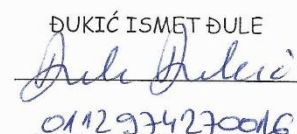 ĐUKIĆ ISMET ĐULE
Đule Đukić
0112974270016